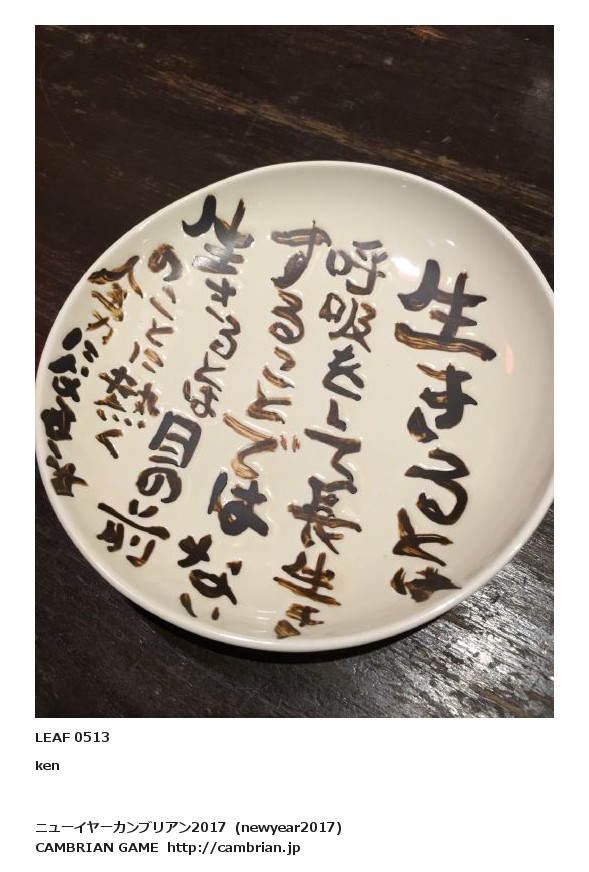 生きるとは
呼吸をして長生き
することではない
生きるとは目の前
のことに
LEAF 0513
ken
ニューイヤーカンブリアン2017  (newyear2017)
CAMBRIAN GAME  http://cambrian.jp